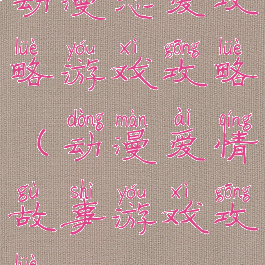 动漫恋爱攻
lüè yóu xì gōng lüè
略游戏攻略
dòng màn ài qíng
（动漫爱情
gù shì yóu xì gōng
故事游戏攻
lüè